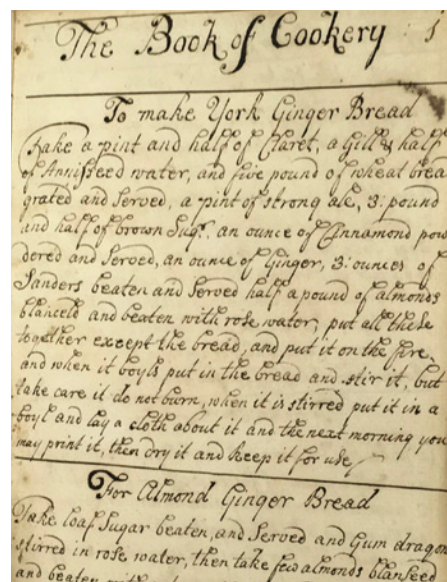 The Book of Cookery 1
To make York Ginger Bread
Take a pint and half of Claret, a Gill & half
of Annisseed water, and five pound of wheat brea
grated and Served, a pint of strong ale, 3: pound
and half of brown Sugr. an ounce of Cinnamond pow
dered and Served, an ounce of Ginger, 3: ounces of
Sanders beaten and Served half a pound of almonds
blanceld and beaten with rose water, put all these
together except the bread, and put it on the fire,
and when it boyls put in the bread and stir it, but
take care it do not burn, when it is stirred put it in a
boyl and lay a cloth about it and the next morning you
may print it, then dry it and keep it for use
For Almond Ginger Bread
Take loaf Sugar beaten, and Served and Gum dragon
stirred in rose water, then take few almonds blanseed
and beaten with